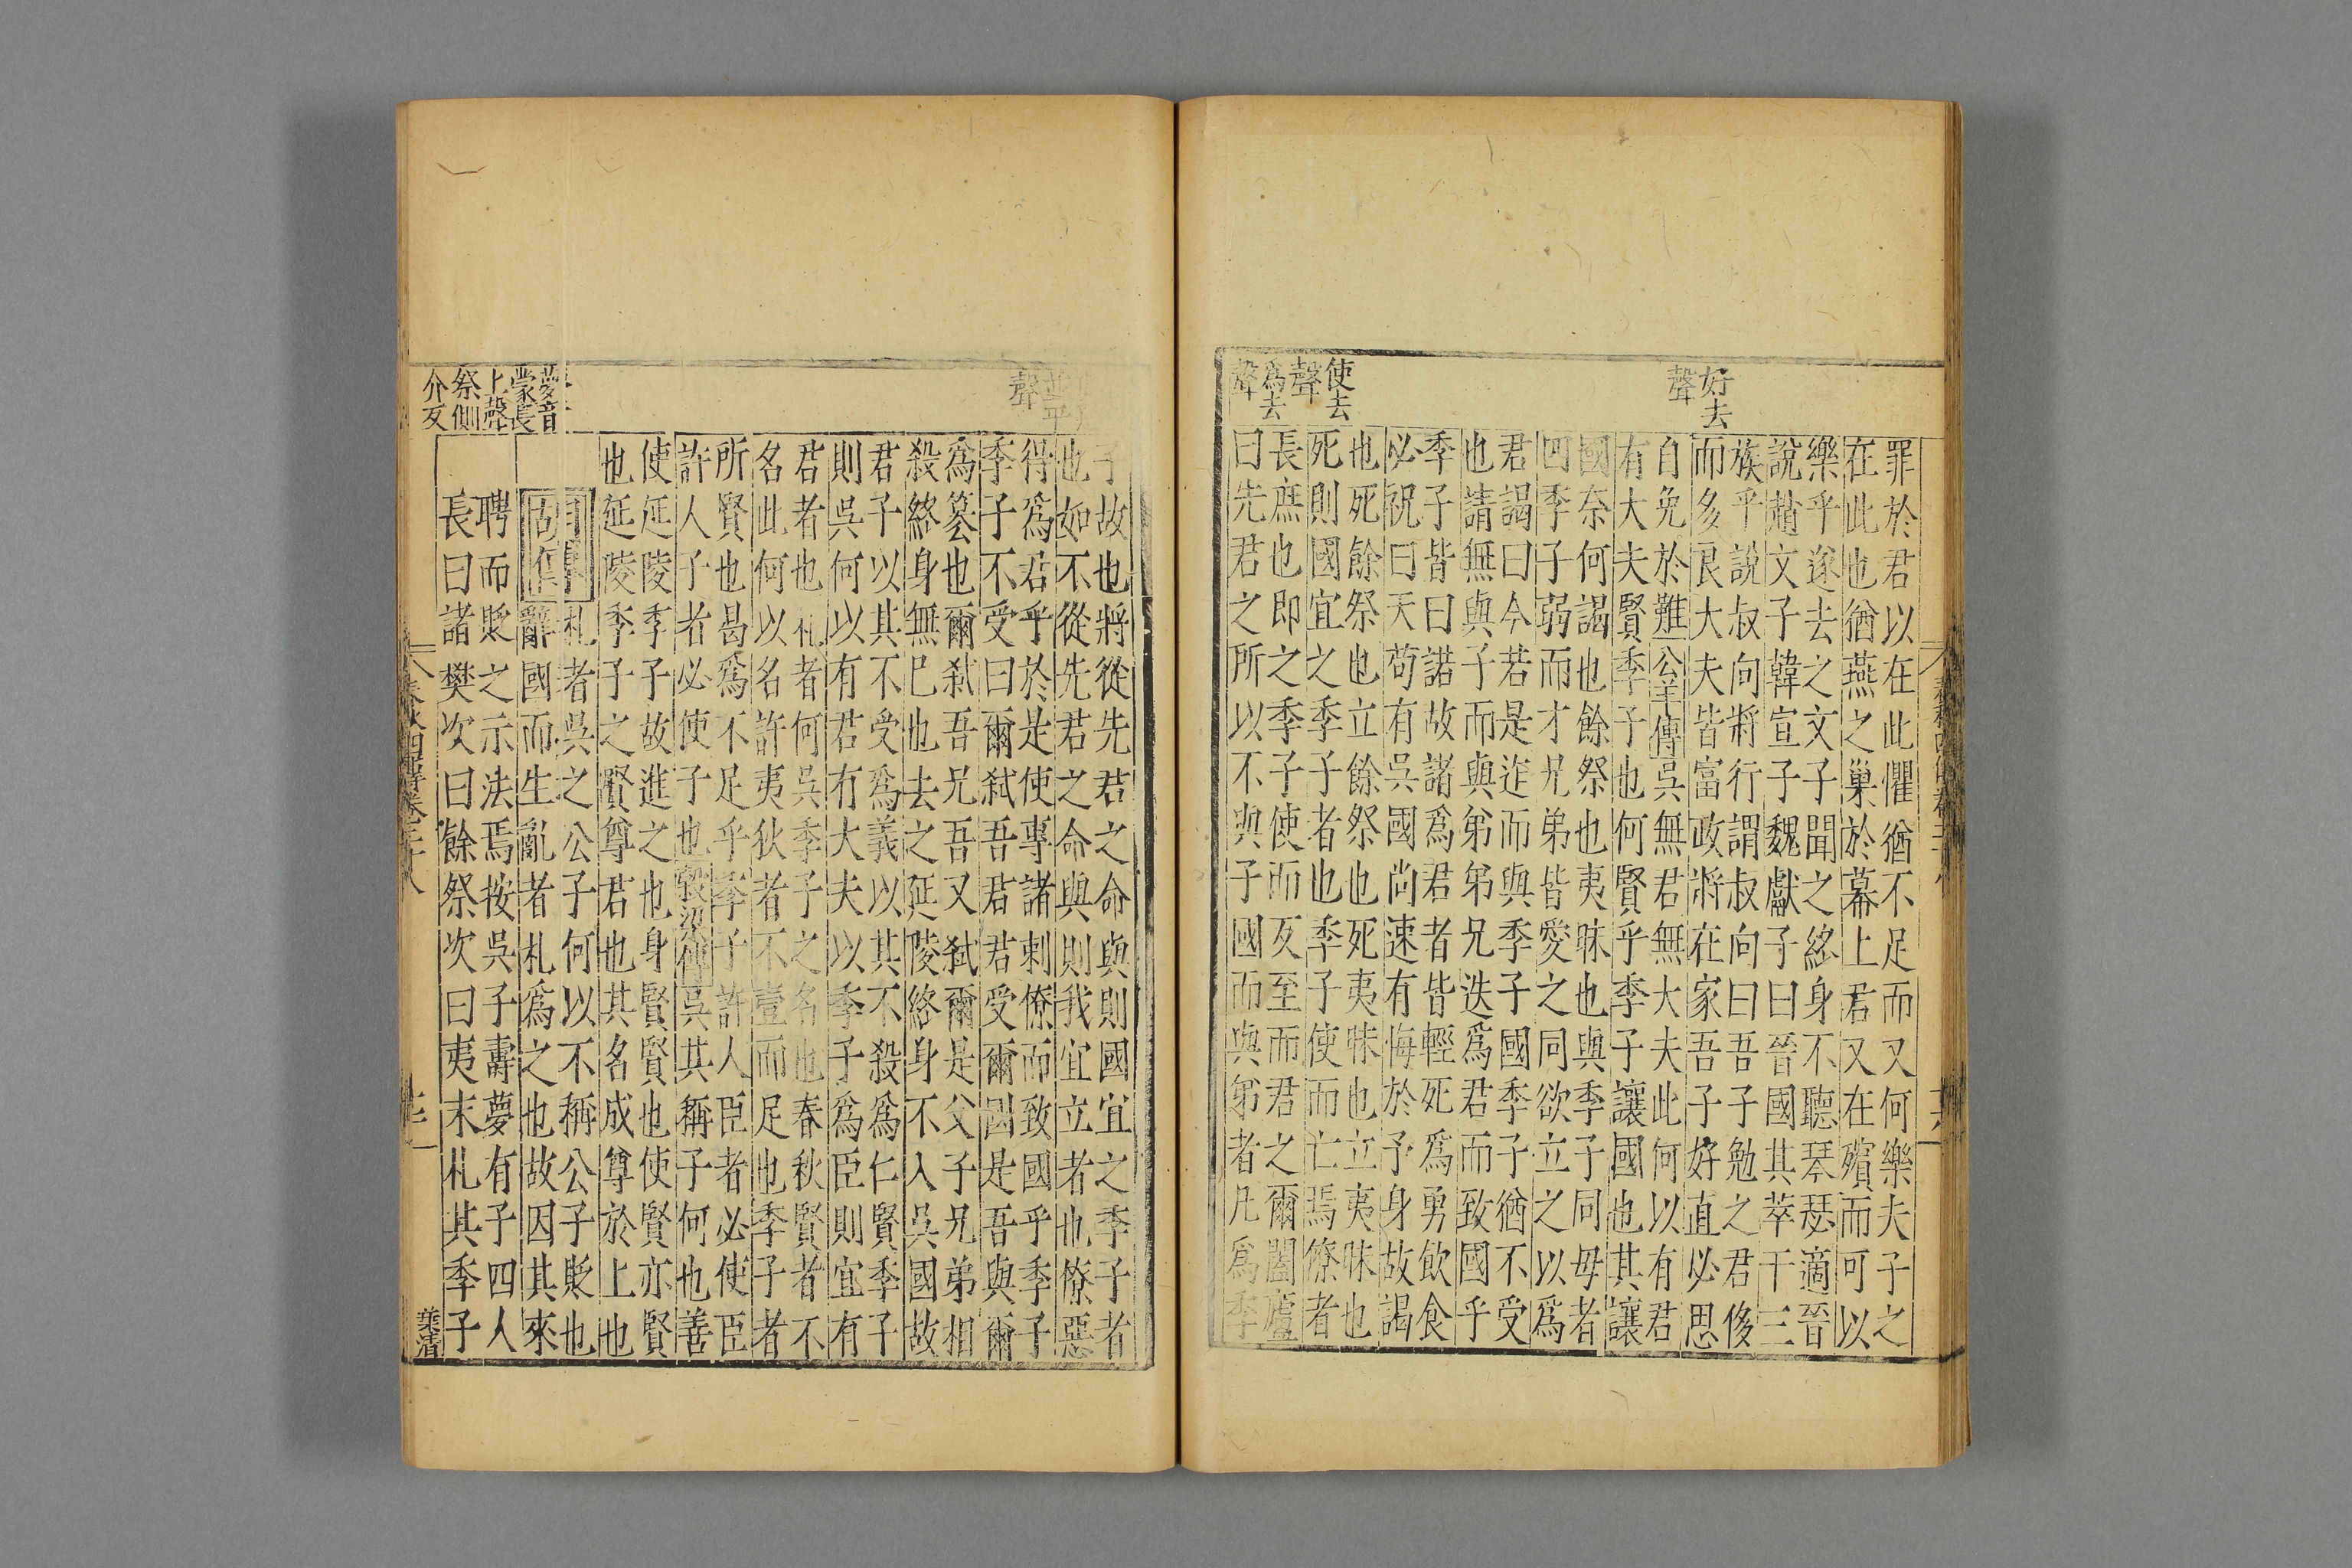 好去
聲
使去
聲
爲去
聲
罪於君以在此懼猶不足而又何樂夫子之
在此也猶燕之巢於幕上君又在殯而可以
樂乎遂去之文子聞之終身不聽琴瑟適晉
說趙文子韓宣子魏獻子曰晉國其萃干三
族乎說叔向將行謂叔向曰吾子勉之君侈
而多良大夫皆富政將在家吾子好直必思
自免於難公羊傳吳無君無大夫此何以有君
有大夫賢季子也何賢乎季子讓國也其讓
國奈何謁也餘祭也夷昧也與季子同母者
四季子弱而才兄弟皆愛之同欲立之以爲
君謁曰今若是迮而與季子國季子猶不受
也請無與子而與弟弟兄迭爲君而致國乎
季子皆曰諾故諸爲君者皆輕死爲勇飲食
必祝曰天苟有吳國尚速有悔於予身故謁
也死餘祭也立餘祭也死夷昧也立夷昧也
死則國宜之季子者也季子使而亡焉僚者
長庶也即之季子使而反至而君之爾闔廬
曰先君之所以不與子國而與弟者凡爲季
聲
夢音
蒙長
上聲
祭側
介反
子故也將從先君之命與則國宜之季子者
也如不從先君之命與則我宜立者也僚惡
得爲君乎於是使專諸刺僚而致國乎季子
季子不受曰爾弒吾君君受爾國是吾與爾
爲篡也爾弒吾兄吾又弒爾是父子兄弟相
殺終身無已也去之延陵終身不入吳國故
君子以其不受爲義以其不殺爲仁賢季子
則吳何以有君有大夫以季子爲臣則宜有
君者也札者何吳季子之名也春秋賢者不
名此何以名許夷狄者不壹而足也季子者
所賢也曷爲不足乎季子許人臣者必使臣
許人子者必使子也穀梁傳吳其稱子何也善
使延陵季子故進之也身賢賢也使賢亦賢
也延陵季子之賢尊君也其名成尊於上也
札者吳之公子何以不稱公子貶也
辭國而生亂者札爲之也故因其來
聘而貶之示法焉按吳子壽夢有子四人
長曰諸樊次曰餘祭次曰夷末札其季子
春秋四傳卷二十八
葉清